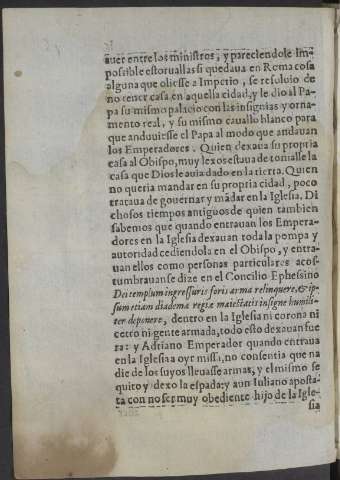 auer entre los ministros, y pareciendole Im-
possible estoruallas si quedaua en Roma cosa
alguna que oliesse a Imperio, se resoluio de
no tener casa en aquella cidad, y le dio al Pa-
pa su mismo palacio con las insignias y orna-
mento real, y su mismo cauallo blanco para
que anduuiesse el Papa al modo que andauan
los Emperadores. Quien dexaua su propria
casa al Obispo, muy lexos estaua de tomalle la
casa que Dios le auia dado en la tierra. Quien
no queria mandar en su propria cidad, poco
trataua de gouernar y mãdar en la Iglesia. Di
chosos tiempos antiguos de quien tambien
sabemos que quando entrauan los Empera-
dores en la Iglesia dexauan toda la pompa y
autoridad cediendola en el Obispo, y entra-
uan ellos como personas particulares acos-
tumbrauan se dize en el Concilio Ephessino
Dei templum ingressuris foris arma relinquere, & ip-
sum etiam diadema regiæ maiestatis insigne humili-
ter deponere, dentro en la Iglesia ni corona ni
cetro ni gente armada, todo esto dexauan fue
ra: y Adriano Emperador quando entraua
en la Iglesia a oyr missa, no consentia que na
die de los suyos lleuasse armas, y el mismo se
quito y dexo la espada: y aun Iuliano aposta-
ta con no ser muy obediente hijo de la Igle-
sia